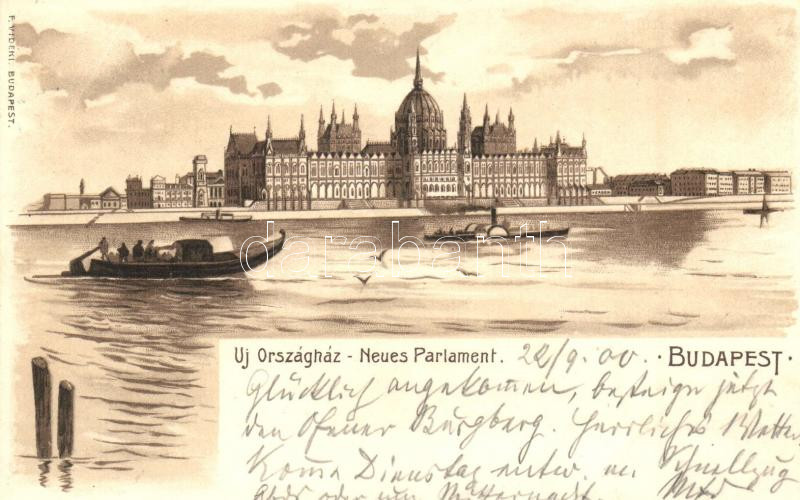 F. VIDÉKI. BUDAPEST.
darabanth
Uj Országház - Neues Parlament. 22/9.00. · BUDAPEST ·
Glücklich angekommen, besteige jetzt
den Ofener Burgberg. Herrliches Wetter
Komme Dienstag entw. m. Schnellzug
Abds oder um Mitternacht.